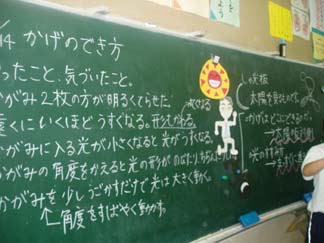 /14 かげのでき方
ったこと、気づいたこと。
がみ2枚の方が明るくてらせた。
遠くにいくほどうすくなる。形もかわる。
がみに入る光が小さくなると光がうすくなる。
がみの角度をかえると光の形が のびたり、ちぢんだり
かがみを少しうごかすだけで光は大きく動く。
↑角度をすばやく動かす。
太陽を
かげはどこにできるのか。